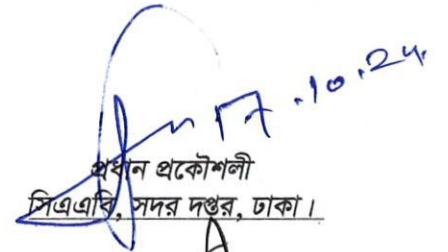 17.10.24
প্রধান প্রকৌশলী
সিএএবি, সদর দপ্তর, ঢাকা।